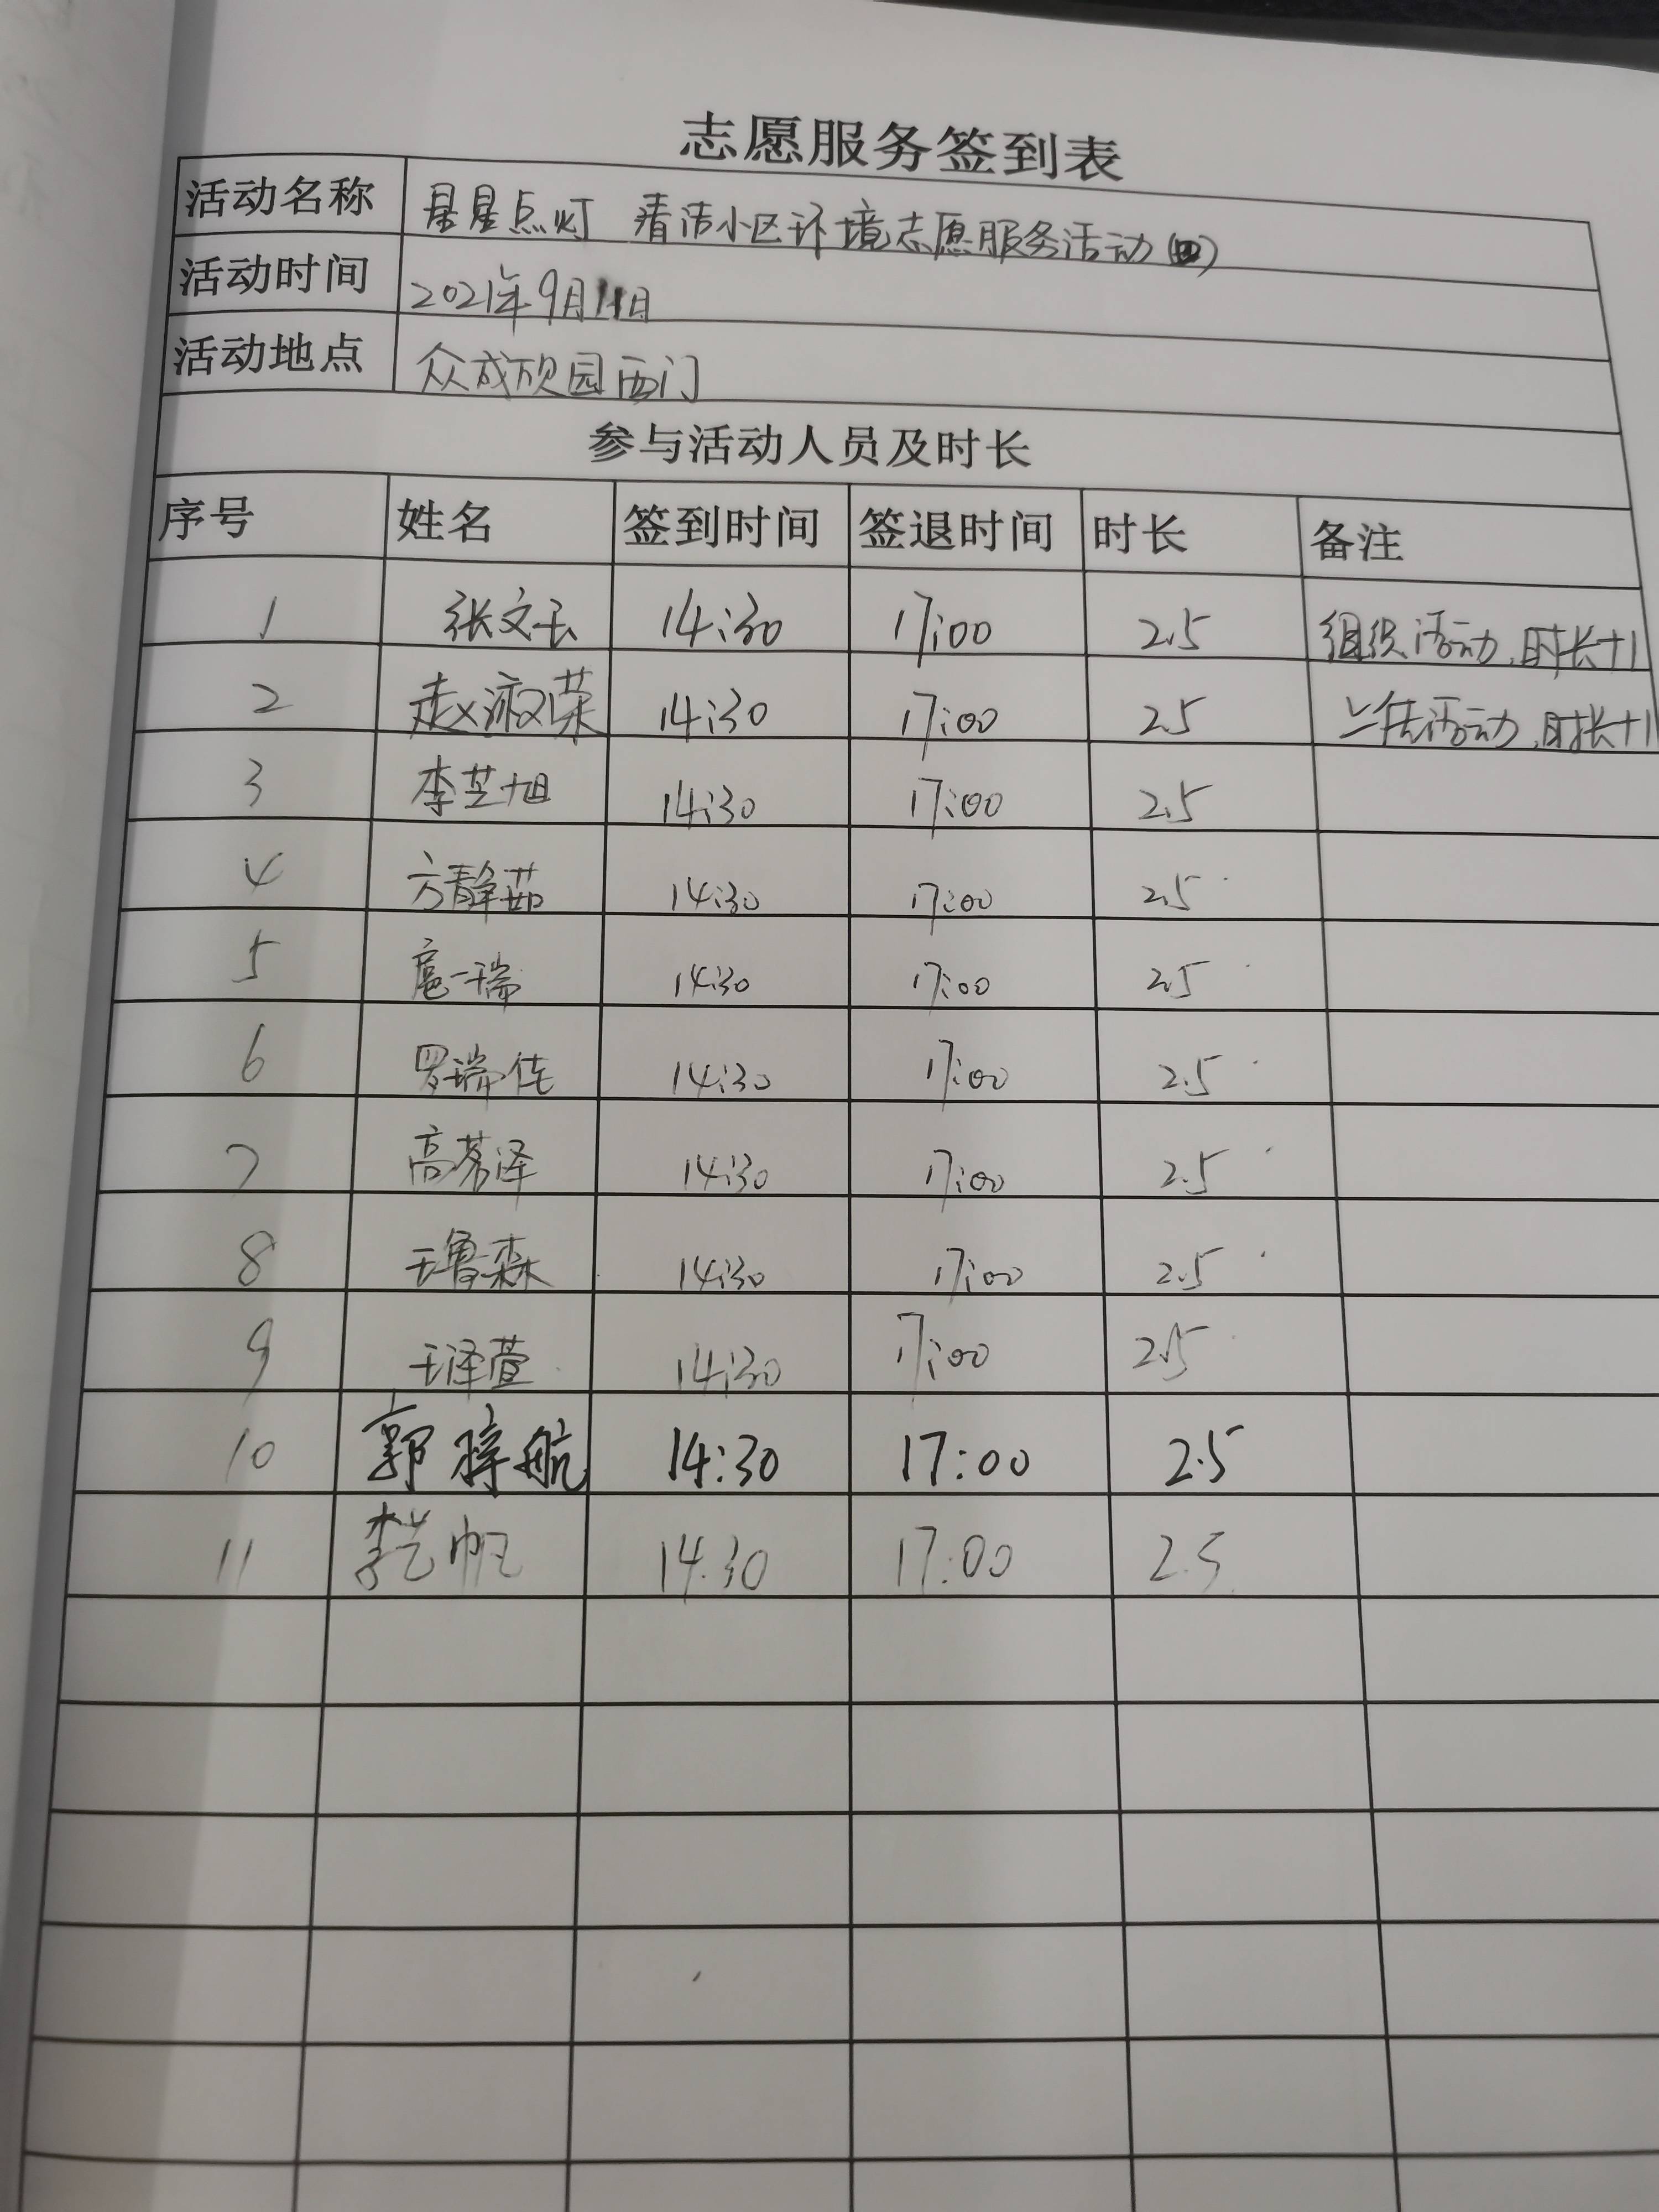 志愿服务签到表
活动名称 星星点灯 清洁小区环境志愿服务活动(四)
活动时间 2021年9月11日
活动地点 众成颐园西门
参与活动人员及时长
序号 姓名 签到时间 签退时间 时长 备注
1 张文玉 14:30 17:00 2.5 组织活动,时长+1
2 赵淑荣 14:30 17:00 2.5 活动,时长+1
3 李芝旭 14:30 17:00 2.5
4 方静茹 14:30 17:00 2.5
5 扈一瑞 14:30 17:00 2.5
6 罗瑞佳 14:30 17:00 2.5
7 高茗泽 14:30 17:00 2.5
8 王鲁森 14:30 17:00 2.5
9 王泽萱 14:30 17:00 2.5
10 郭梓航 14:30 17:00 2.5
11 李艺帆 14:30 17:00 2.5